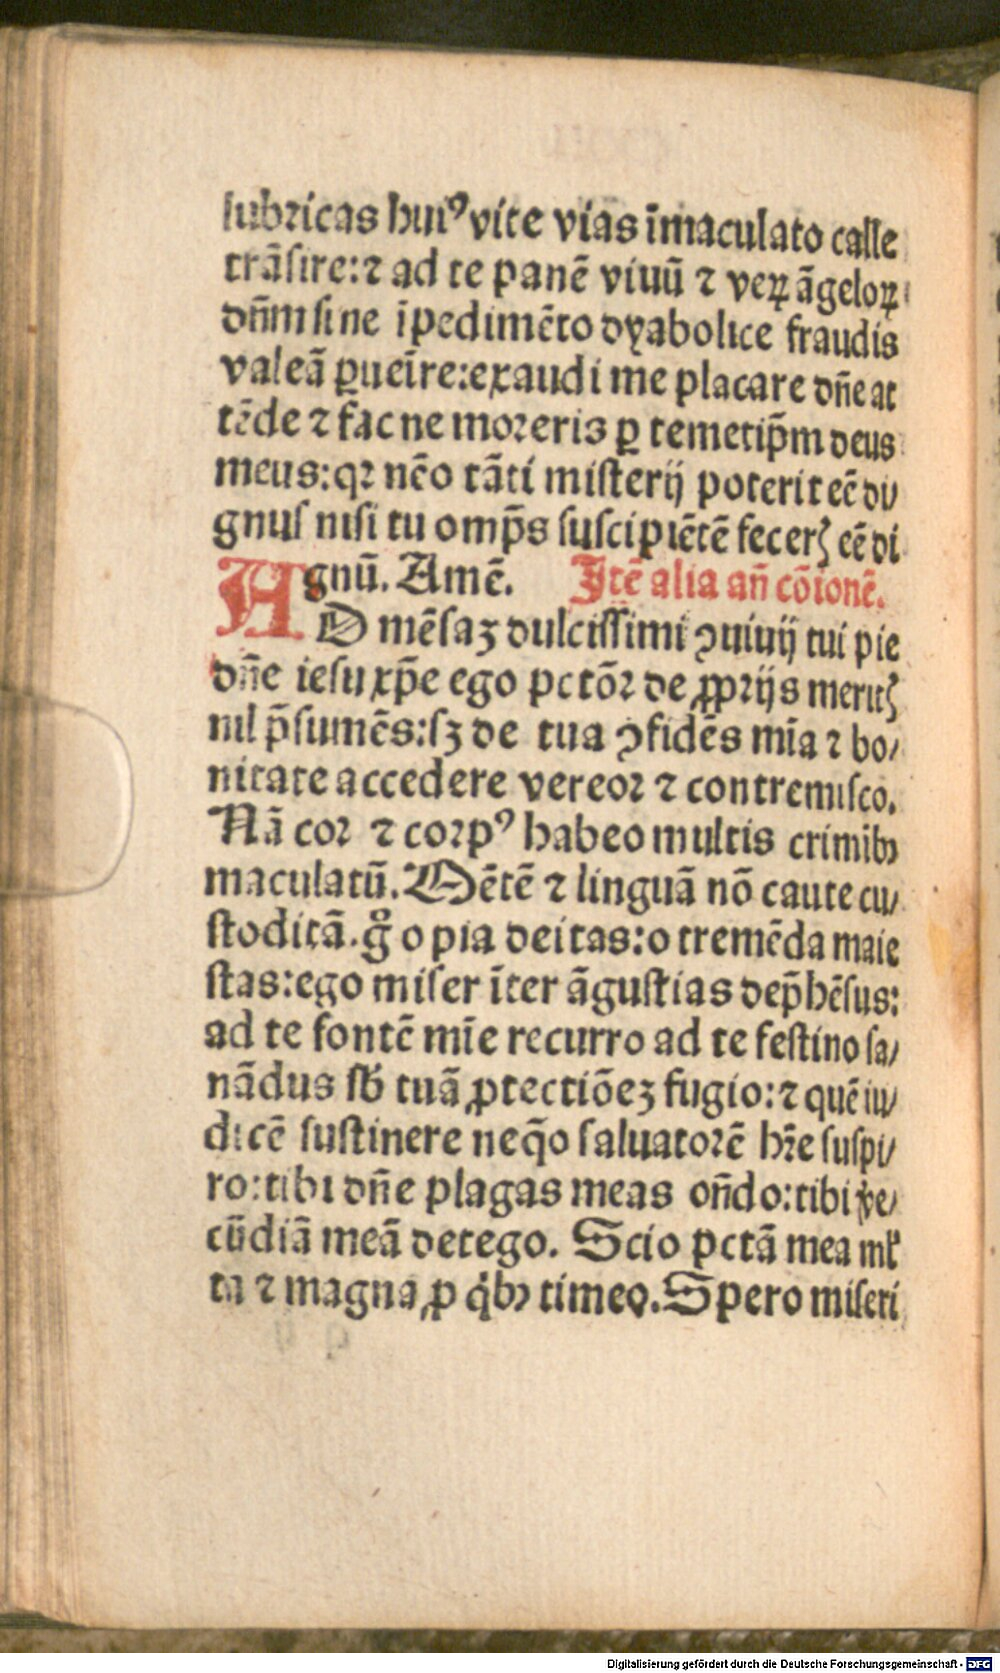 lubricas huiꝰ vite vias īmaculato calle
trāsire: ⁊ ad te panē viuū ⁊ veꝝ āgeloꝝ
dn̄m sine īpedimēto dyabolice fraudis
valeā ꝑueīre: exaudi me placare dn̄e at
tēde ⁊ fac ne moreris ꝑ temetip̄m deus
meus: qꝛ nēo tāti misterij poterit eē di/
gnus nisi tu omp̄s suscipiētē feceꝛꝭ eē di
gnū. Amē. Itē alia an̄ cōionē.
AD mēsaꝫ dulcissimi ꝯuiuij tui pie
dn̄e iesu xp̄e ego pctōꝛ de ꝓprijs meritꝭ
nil p̄sumēs: sꝫ de tua ꝯfidēs mīa ⁊ bo/
nitate accedere vereor ⁊ contremisco.
Nā cor ⁊ corpꝰ habeo multis crimibꝰ
maculatū. Mētē ⁊ linguā nō caute cu/
stoditā. gͦ o pia deitas: o tremēda maie
stas: ego miser īter āgustias dep̄hēsus:
ad te fontē mīe recurro ad te festino sa/
nādus sb̄ tuā ꝓtectiōeꝫ fugio: ⁊ quē iu/
dicē sustinere neq̄o saluatorē hr̄e suspi/
ro: tibi dn̄e plagas meas on̄do: tibi ve/
cūdiā meā detego. Scio pctā mea ml̄
ta ⁊ magna ꝓ qͥbꝰ timeo. Spero miseri
Digitalisierung gefördert durch die Deutsche Forschungsgemeinschaft - DFG